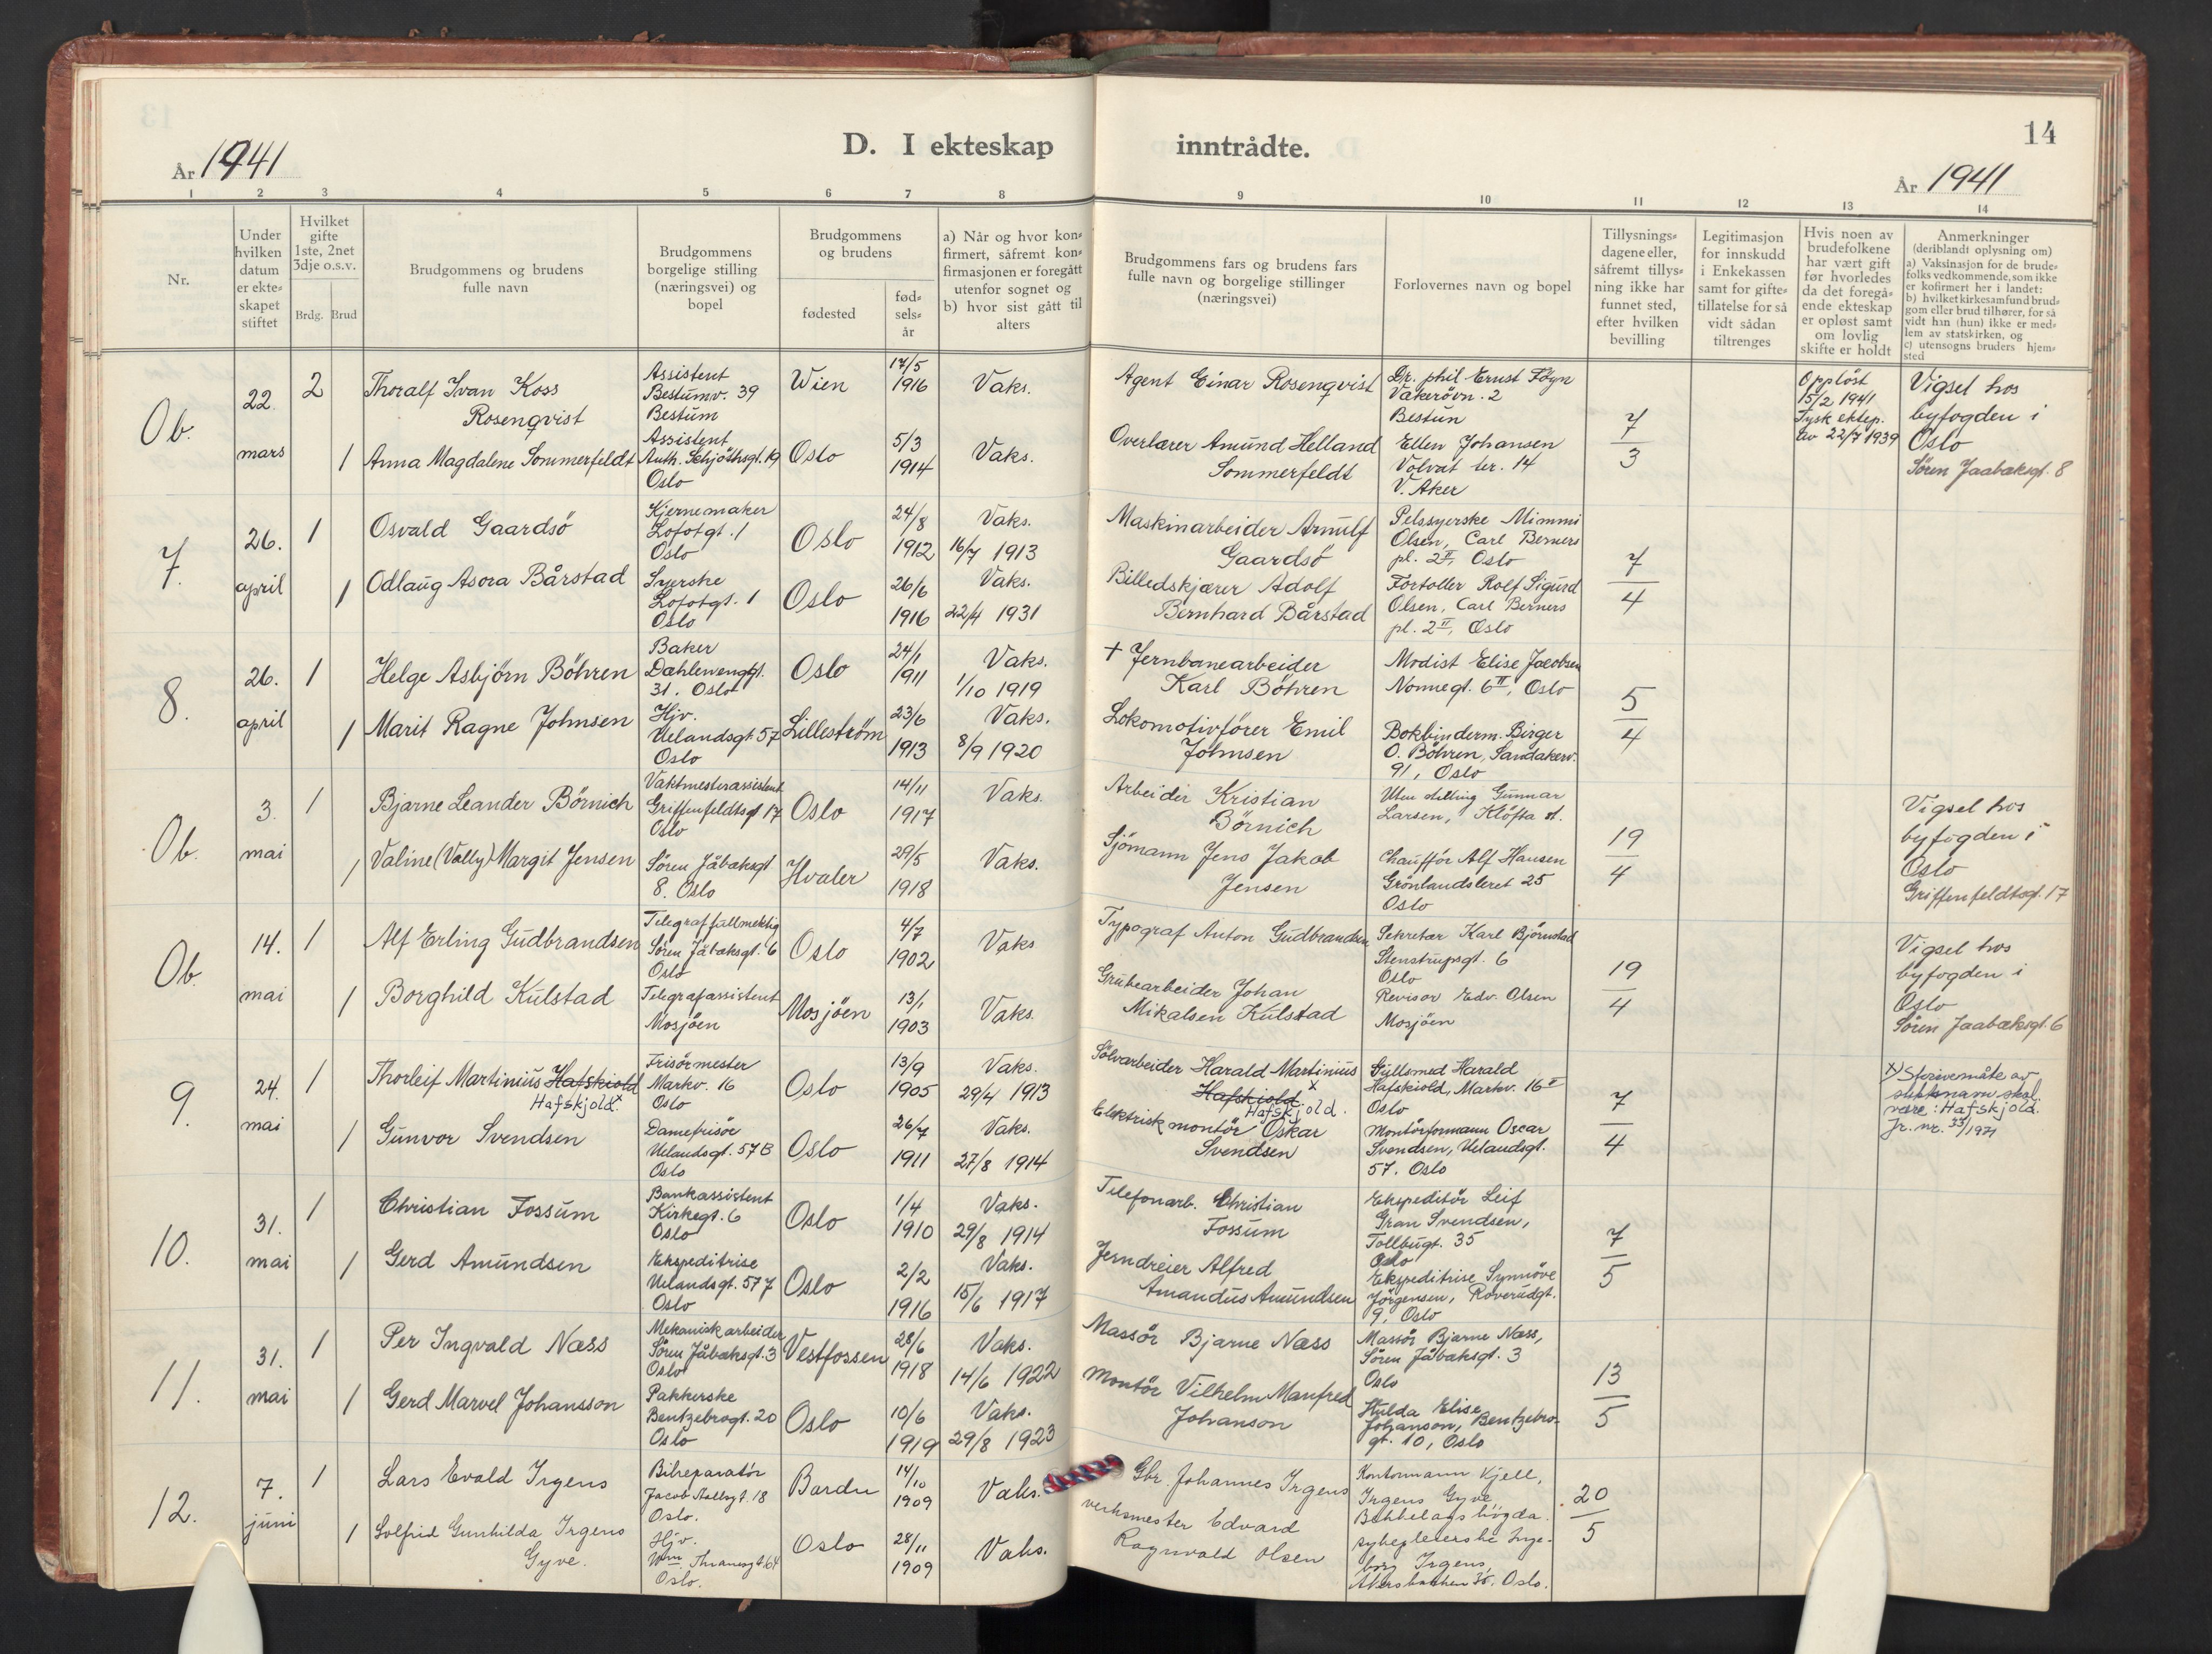 13
14
D. I ekteskap inntrådte.
År 1941
År 1941
1 2 3 4 5 6 7 8 9 10 11 12 13 14
Nr.
Under
hvilken
datum
er ekte-
skapet
stiftet
Hvilket
gifte
1ste, 2net
3dje o.s.v.
Brdg. Brud
Brudgommens og brudens
fulle navn
Brudgommens
borgelige stilling
(næringsvei) og
bopel
Brudgommens
og brudens
fødested
fød-
sels-
år
a) Når og hvor kon-
firmert, såfremt kon-
firmasjonen er foregått
utenfor sognet og
b) hvor sist gått til
alters
Brudgommens fars og brudens fars
fulle navn og borgelige stillinger
(næringsvei)
Forlovernes navn og bopel
Tillysnings-
dagene eller,
såfremt tillys-
ning ikke har
funnet sted,
efter hvilken
bevilling
Legitimasjon
for innskudd
i Enkekassen
samt for gifte-
tillatelse for så
vidt sådan
tiltrenges
Hvis noen av
brudefolkene
har vært gift
før hvorledes
da det foregå-
ende ekteskap
er opløst samt
om lovlig
skifte er holdt
Anmerkninger
(deriblandt oplysning om)
a) Vaksinasjon for de brude-
folks vedkommende, som ikke
er kofirmert her i landet:
b) hvilket kirkesamfund brud-
gom eller brud tilhører, for så
vidt han (hun) ikke er med-
lem av statskirken, og
c) utensogns bruders hjem-
sted
Ob.
22.
mars
2
Thoralf Ivan Koss
Rosenqvist
Assistent
Bestumv. 39
Bestum
Wien
17/5
1916
Vaks.
Agent Einar Rosenqvist
Dr. phil Ernst Föyn
Vækerövn. 2
Bestun
7/3
Opplöst
15/2 1941
Tysk ektep.
av 22/7 1939
Vigsel hos
byfogden i
Oslo
Sören Jaabæksgt. 8
1
Anna Magdalene Sommerfeldt
Assistent
Auth. Schjöthsgt. 19
Oslo
Oslo
5/3
1914
Vaks.
Overlærer Amund Helland
Sommerfeldt
Ellen Johansen
Volvat ter. 14
V. Aker
7.
26.
april
1
Osvald Gaardsö
Kjernemaker
Lofotgt. 1
Oslo
Oslo
24/8
1912
Vaks.
16/7 1913
Maskinarbeider Arnulf
Gaardsö
Pelssyerske Mimmi
Olsen, Carl Berners
pl. 2 II, Oslo
7/4
1
Odlaug Asora Bårstad
Syerske
Lofotgt. 1
Oslo
Oslo
26/6
1916
Vaks.
22/4 1931
Billedskjærer Adolf
Bernhard Bårstad
Fortoller Rolf Sigurd
Olsen, Carl Berners
pl. 2 II, Oslo
8.
26.
april
1
Helge Asbjörn Böhren
Baker
Dæhlenenggt.
31. Oslo
Oslo
24/1
1911
Vaks.
1/10 1919
+ Jernbanearbeider
Karl Böhren
Modist Elise Jacobsen
Nonnegt. 6 II, Oslo
5/4
1
Marit Ragne Johnsen
Hjv.
Uelandsgt. 57
Oslo
Lilleström
23/6
1913
Vaks.
8/9 1920
Lokomotivförer Emil
Johnsen
Bokbinderm. Birger
O. Böhren, Sandakerv.
91, Oslo
Ob.
3.
mai
1
Bjarne Leander Börnich
Vaktmesterassistent
Griffenfeldtsgt 17
Oslo
Oslo
14/11
1917
Vaks.
Arbeider Kristian
Börnich
Uten stilling Gunnar
Larsen, Klöfta st.
19/4
Vigsel hos
byfogden i
Oslo
Griffenfeldtsgt. 17
1
Valine (Vally) Margit Jensen
Sören Jåbæksgt
8. Oslo
Hvaler
29/5
1918
Vaks.
Sjömann Jens Jakob
Jensen
Chauffför Alf Hansen
Grönlandsleret 25
Oslo
Ob.
14.
mai
1
Alf Erling Gudbrandsen
Telegraffullmektig
Sören Jåbæksgt. 6
Oslo
Oslo
4/7
1902
Vaks
Typograf Anton Gudbrandsen
Sekretær Karl Björnstad
Stenstrupsgt. 6
Oslo
19/4
Vigsel hos
byfogden i
Oslo
Sören Jaabæksgt. 6
1
Borghild Kulstad
Telegrafassistent
Mosjöen
Mosjöen
13/1
1903
Vaks.
Grubearbeider Johan
Mikalsen Kulstad
Revisor Edv. Olsen
Mosjöen
9.
24.
mai
1
Thorleif Martinius Hafskiold
Hafskjold. x
Frisörmester
Markv. 16
Oslo
Oslo
13/9
1905
Vaks.
29/4 1913
Sölvarbeider Harald Martinius
Hafskiold x
Hafskjold.
Gullsmed Harald
Hafskiold, Markv. 16 II
Oslo
7/4
x) Skrivemåte av
slektsnavn skal
være: Hafskjold.
Jr. nr. 33/1971
1
Gunvor Svendsen
Damefrisör
Uelandsgt. 57B
Oslo
Oslo
26/7
1911
Vaks.
27/8 1914
Elektrisk montör Oskar
Svendsen
Montörformann Oscar
Svendsen, Uelandsgt.
57. Oslo
10.
31.
mai
1
Christian Fossum
Bankassistent
Kirkegt. 6
Oslo
Oslo
1/4
1910
Vaks.
29/8 1914
Telefonarb. Christian
Fossum
Ekspeditör Leif
Gran Svendsen,
Tollbugt. 35
Oslo
7/5
1
Gerd Amundsen
Ekspeditrise
Uelandsgt. 57
Oslo
Oslo
2/2
1916
Vaks.
15/6 1917
Jerndreier Alfred
Amandus Amundsen
Ekspeditrise Synnöve
Jörgensen, Roverudgt.
9, Oslo
11.
31.
mai
1
Per Ingvald Næss
Mekanisk arbeider
Sören Jåbæksgt. 3
Oslo
Vestfossen
28/6
1918
Vaks.
14/6 1922
Massör Bjarne Næss
Massör Bjarne Næss,
Sören Jåbæksgt. 3
Oslo
13/5
1
Gerd Marvel Johansson
Pakkerske
Bentzebrogt. 20
Oslo
Oslo
10/6
1919
Vaks.
29/8 1923
Montör Vilhelm Manfred
Johanson
Hulda Elise
Johanson, Bentzebro-
gt. 10, Oslo
12.
7.
juni
1
Lars Evald Irgens
Bilreparatör
Jacob Aallsgt. 18
Oslo.
Bardu
14/10
1909
Vaks.
Gbr. Johannes Irgens
Kontormann Kjell,
Irgens Gyve
Bekkelagshögda.
20/5
1
Solfrid Gunhilda Irgens
Gyve.
Hjv.
Wm. Thranesgt. 64
Oslo.
Oslo
28/11
1909
Vaks.
verksmester Edvard
Ragnvald Olsen
sykepleierske Inge-
borg Irgens
Akersbakken 35. Oslo.